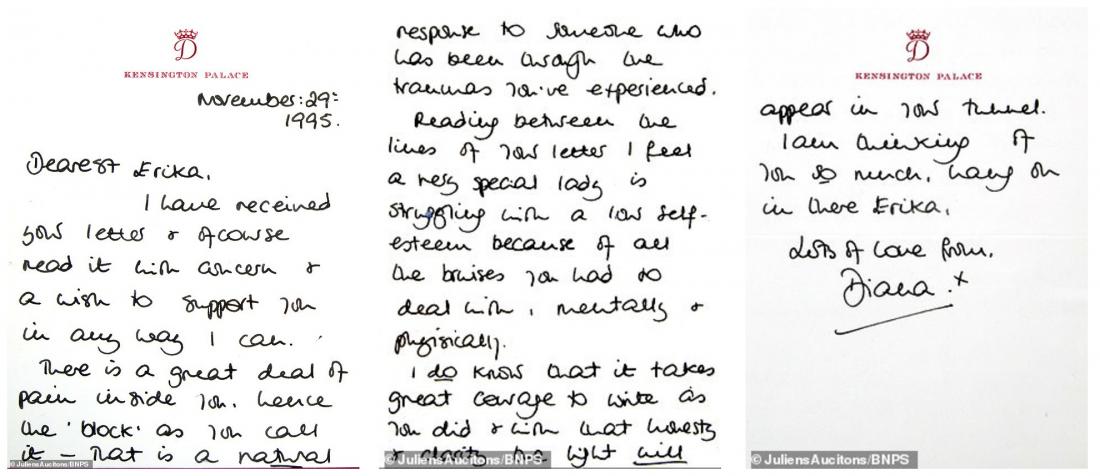 D
KENSINGTON PALACE
November: 29th
1995.
Dearest Erika,
I have received
your letter & ofcourse
read it with concern &
a wish to support you
in any way I can.
There is a great deal of
pain inside you, hence
the 'block' as you call
it - That is a natural
© JuliensAucitons/BNPS
response to someone who
has been through the
traumas you've experienced.
Reading between the
lines of your letter I feel
a very special lady is
struggling with a low self-
esteem because of all
the bruises you had to
deal with, mentally &
physically.
I do know that it takes
great courage to write as
you did & with that honesty
& clarity the light will
© JuliensAucitons/BNPS
D
KENSINGTON PALACE
appear in your tunnel.
I am thinking of
you so much, hang on
in there Erika,
Lots of love from,
Diana. x
© JuliensAucitons/BNPS